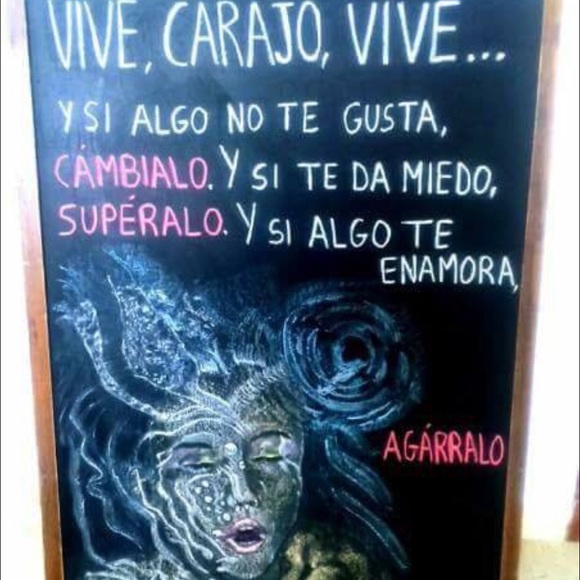 VIVE, CARAJO, VIVE...
Y SI ALGO NO TE GUSTA,
CÁMBIALO. Y SI TE DA MIEDO,
SUPÉRALO. Y SI ALGO TE
ENAMORA,
AGÁRRALO